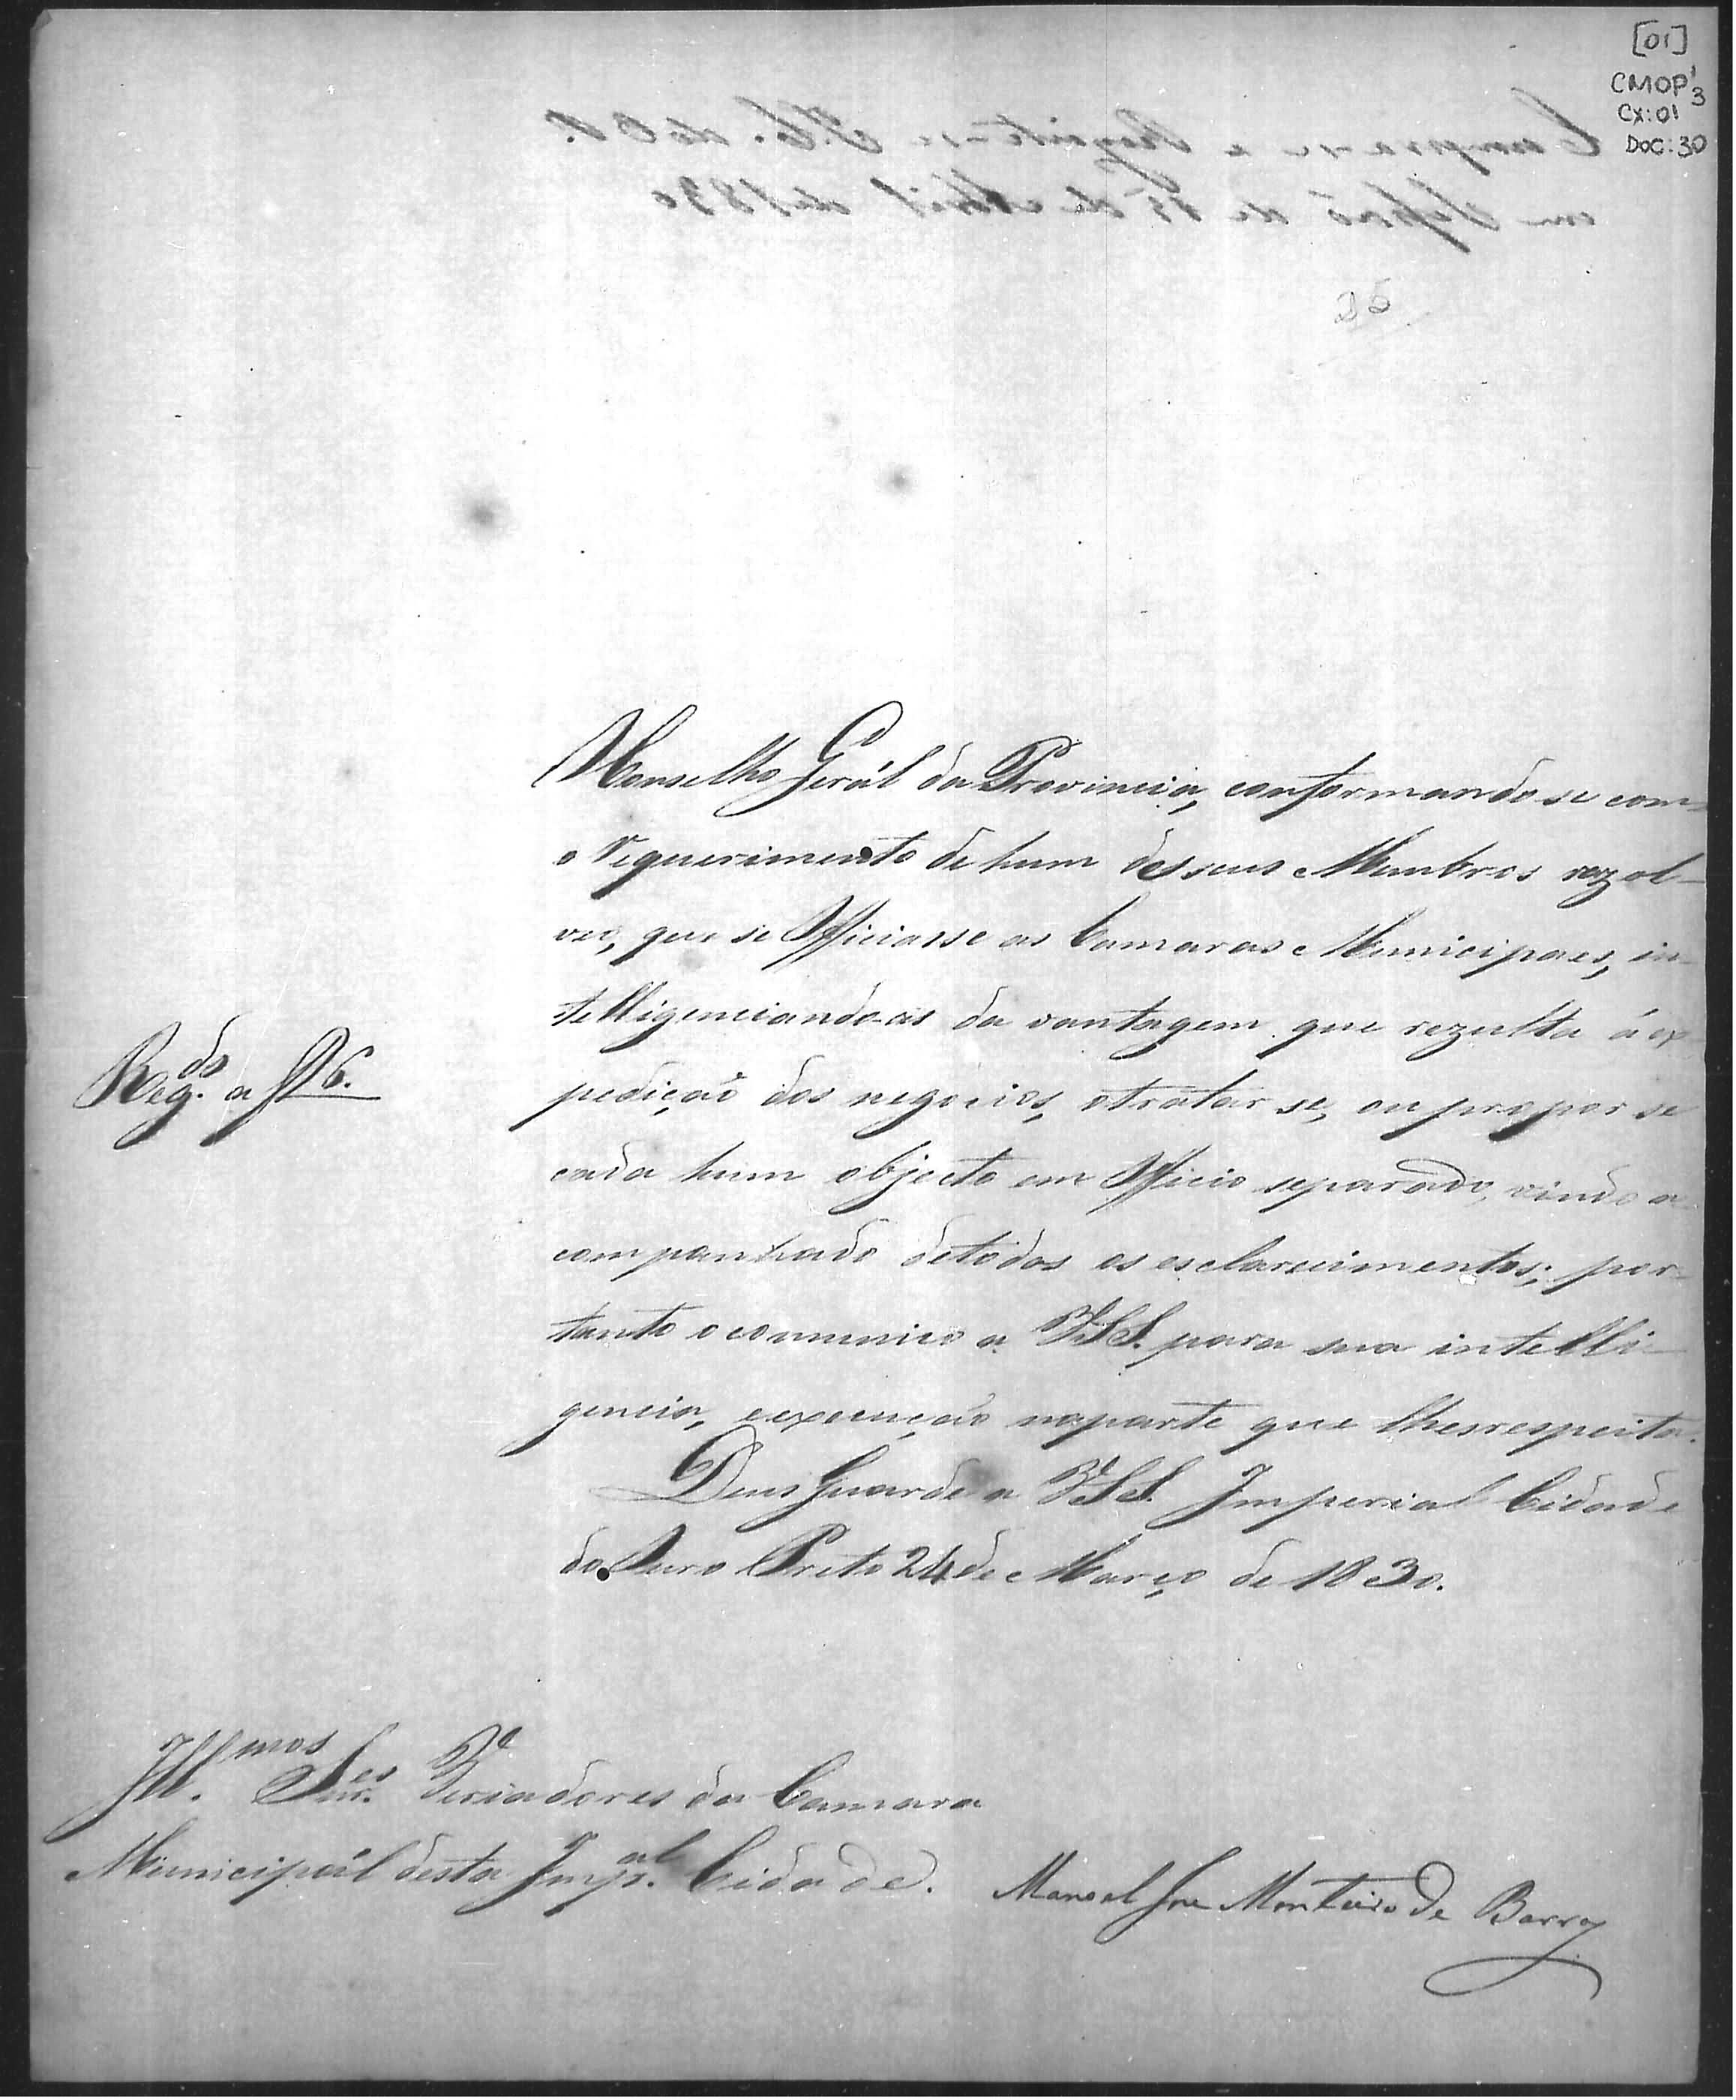 [01]
CMOP 1/3
CX:01
DOC:30
Cumpra-se e Registe-se
em Sessaõ de 15 de Abril de 1830
25
O Conselho Gerál da Provincia, conformando se com
o requerimento de hum dos seus Membros rezol-
veo, que se Officiasse as Camaras Municipaes, in-
telligenciando-as da vantagem que rezulta á ex
pediçaõ dos negocios, otratar se, ou propor se
cada hum objecto em Officio separado, vindo a
companhado detodos os esclarecimentos; por-
tanto ocomunico a VSS. para sua intelli-
gencia, eexecuçaõ naparte que lhesrespeita.
Deus Guarde a VSS. Imperial Cidade
do Ouro Preto 24 de Março de 1830.
Reg.do a f 96.
Ill.mos Snr.es Veriadores da Camara
Municipál desta Imp.al Cidade.
Manoel Jose Monteiro de Barros